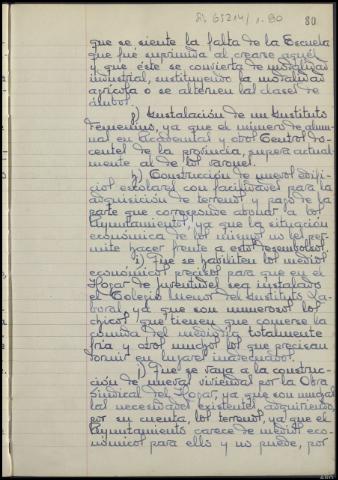 80
que se siente la falta de la Escuela
que fué suprimida al crearse aquél
y que éste se convierta de modalidad
industrial, sustituyendo la modalidad
agrícola o se alternen las clases de
ámbos.
g) Instalación de un Instituto
Femenino, ya que el número de alum-
nas en Academias y otros Centros do-
centes de la provincia, supera actual-
mente al de los varones.
h) Construcción de nuevos edifi-
cios escolares con facilidades para la
adquisición de terrenos y pago de la
parte que corresponde abonar a los
Ayuntamientos, ya que la situación
económica de los mismos no les per-
mite hacer frente a estos desembolsos.
i) Que se habiliten los medios
económicos precisos para que en el
Hogar de Juventudes sea instalado
el Colegio Menor del Instituto La-
boral, ya que son numerosos los
chicos que tienen que comerse la
comida del mediodía totalmente
fría y otros muchos los que precisan
dormir en lugares inadecuados.
j) Que se vaya a la construc-
ción de nuevas viviendas por la Obra
Sindical del Hogar, ya que son muchas
las necesidades existentes, adquiriendo
por su cuenta, los terrenos, ya que el
Ayuntamiento carece de medios eco-
nómicos para ello y no puede, por